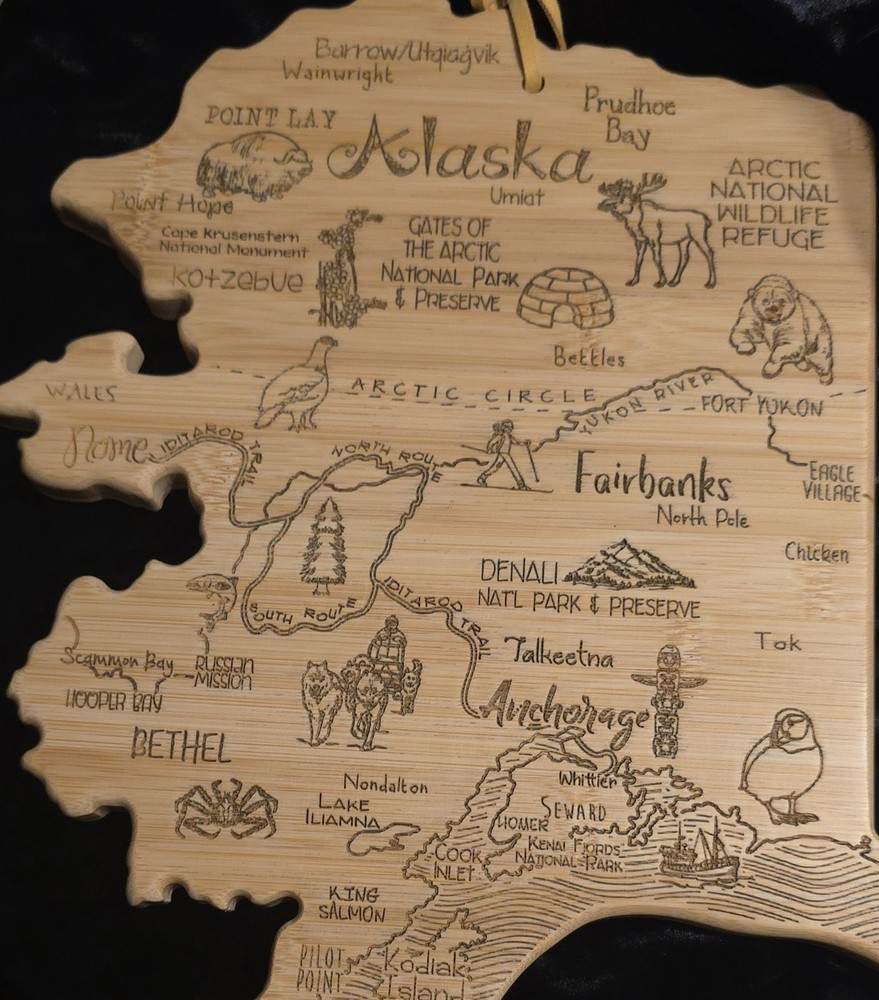 Barrow/Utqiaġvik
Wainwright
Prudhoe
Bay
POINT LAY
Alaska
ARCTIC
NATIONAL
WILDLIFE
REFUGE
Umiat
Point Hope
GATES OF
THE ARCTIC
NATIONAL PARK
& PRESERVE
Cape Krusenstern
National Monument
Kotzebue
Bettles
WALES
ARCTIC CIRCLE
YUKON RIVER
FORT YUKON
Nome
IDITAROD TRAIL
NORTH ROUTE
Fairbanks
EAGLE
VILLAGE
North Pole
Chicken
DENALI
NAT'L PARK & PRESERVE
SOUTH ROUTE
IDITAROD TRAIL
Tok
Talkeetna
Scammon Bay
RUSSIAN
MISSION
HOOPER BAY
Anchorage
BETHEL
Whittier
Nondalton
LAKE
ILIAMNA
SEWARD
HOMER
KENAI FJORDS
NATIONAL PARK
COOK
INLET
KING
SALMON
PILOT
POINT
Kodiak
Island